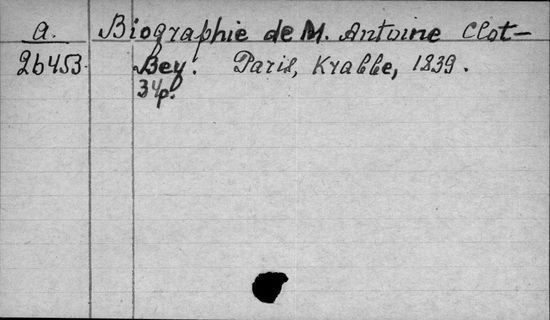 a. Biographie de M. Antoine Clot-
26453. Bey. Paris, Krabbe, 1839.
34p.